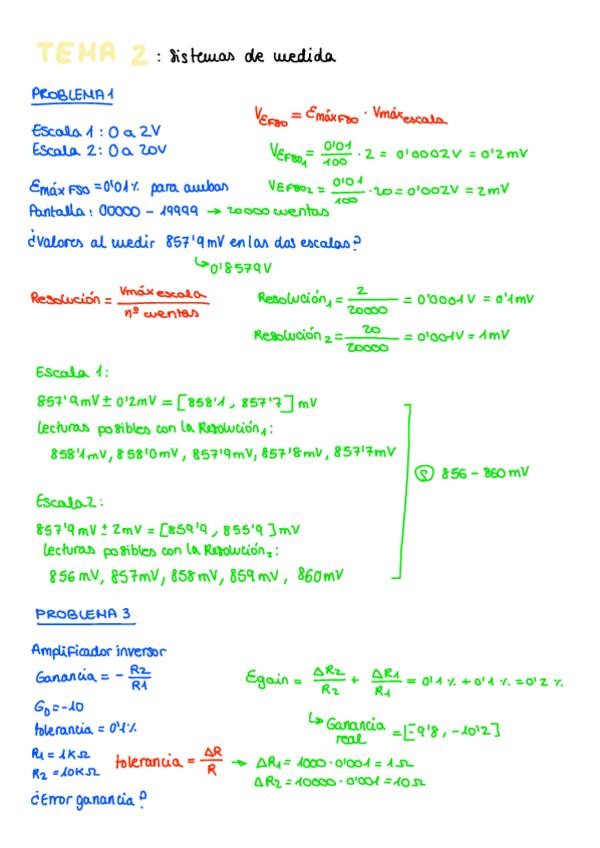 TEMA 2 : Sistemas de medida
PROBLEMA 1
V_EFSO = Emáx FSO · Vmáx escala
Escala 1 : 0 a 2V
Escala 2 : 0 a 20V
V_EFSO1 = 0'01/100 · 2 = 0'0002V = 0'2mV
Emáx FSO = 0'01% para ambas
V_EFSO2 = 0'01/100 · 20 = 0'002V = 2mV
Pantalla : 00000 - 19999 → 20000 cuentas
¿Valores al medir 857'9mV en las dos escalas?
↳ 0'8579V
Resolución = Vmáx escala / nº cuentas
Resolución1 = 2/20000 = 0'0001V = 0'1mV
Resolución2 = 20/20000 = 0'001V = 1mV
Escala 1:
857'9mV ± 0'2mV = [858'1, 857'7] mV
Lecturas posibles con la Resolución1:
858'1mV, 858'0mV, 857'9mV, 857'8mV, 857'7mV
Ⓢ 856 - 860mV
Escala 2:
857'9mV ± 2mV = [859'9, 855'9] mV
Lecturas posibles con la Resolución2:
856mV, 857mV, 858mV, 859mV, 860mV
PROBLEMA 3
Amplificador inversor
Ganancia = - R2/R1
Egain = ΔR2/R2 + ΔR1/R1 = 0'1% + 0'1% = 0'2%
G0 = -10
tolerancia = 0'1%
↳ Ganancia real = [-9'8, -10'2]
R1 = 1KΩ
R2 = 10KΩ
tolerancia = ΔR/R → ΔR1 = 1000 · 0'001 = 1Ω
ΔR2 = 10000 · 0'001 = 10Ω
¿Error ganancia?